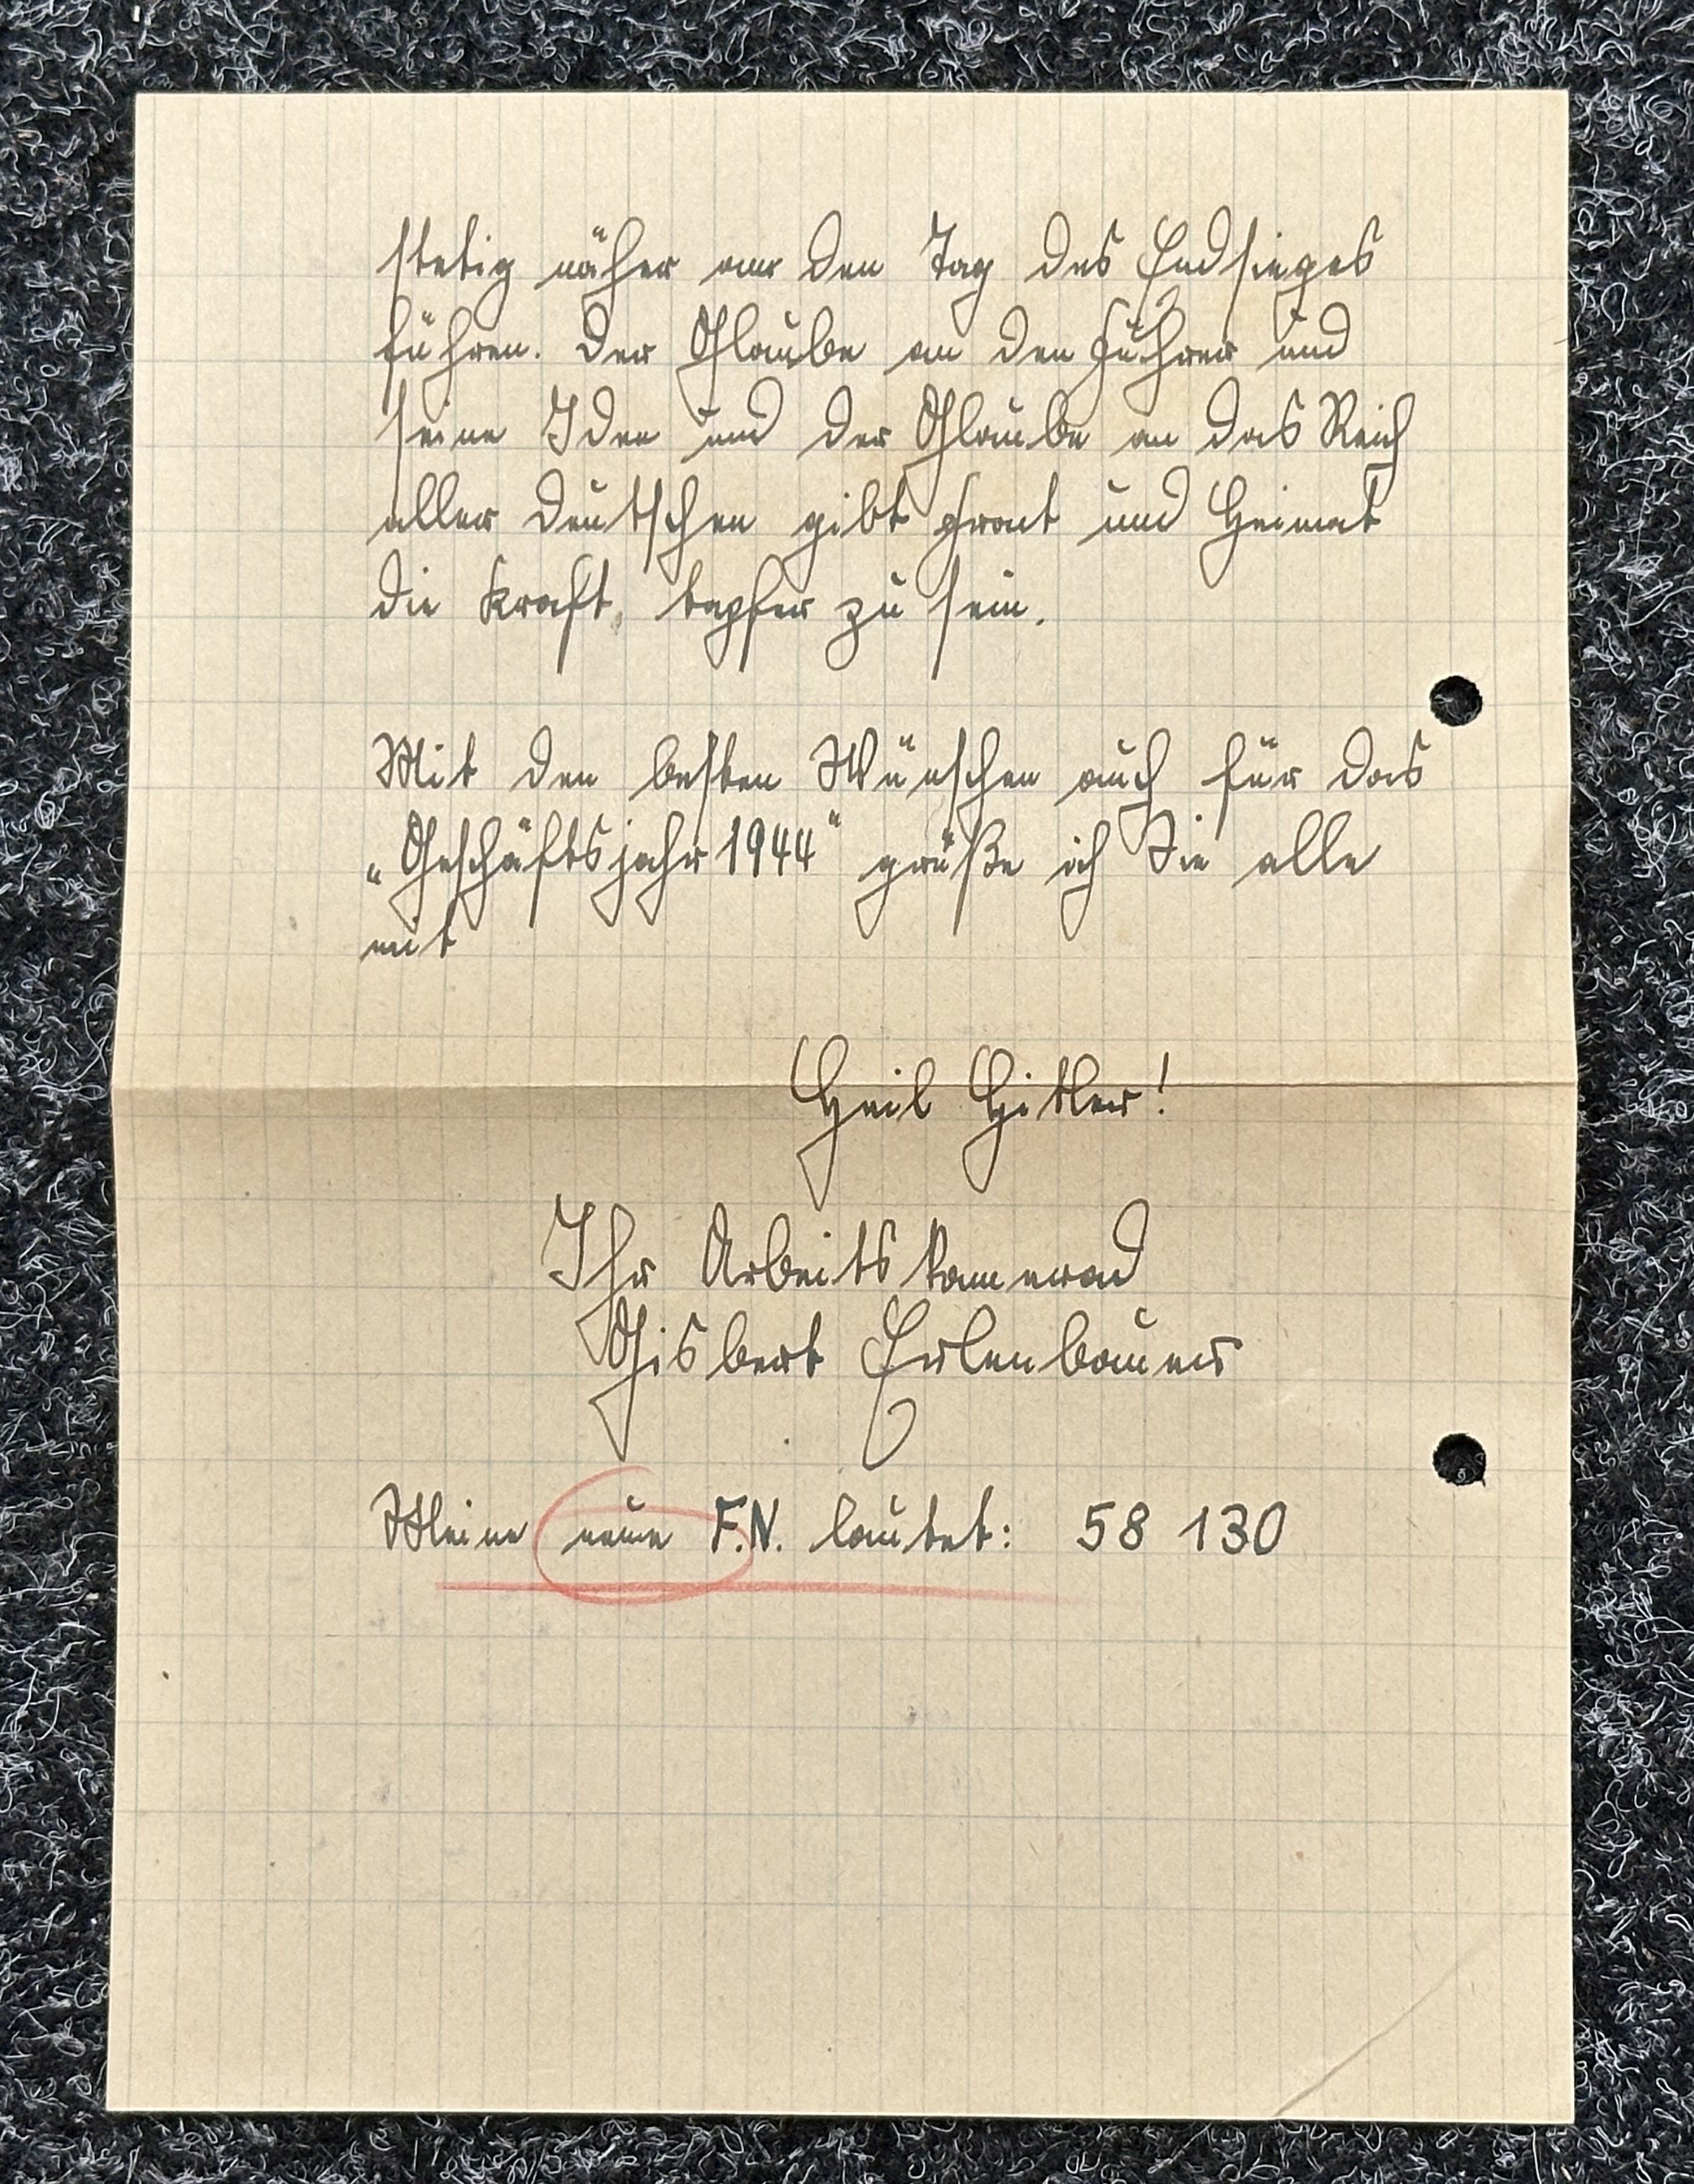 stetig näher an den Tag des Endsieges
führen. Der Glaube an den Führer und
seine Idee und der Glaube an das Reich
aller Deutschen gibt Front und Heimat
die Kraft, tapfer zu sein.
Mit den besten Wünschen auch für das
„Geschäftsjahr 1944" grüße ich Sie alle
mit
Heil Hitler!
Ihr Arbeitskamerad
Gisbert Erlenbauer
Meine neue F.N. lautet: 58 130